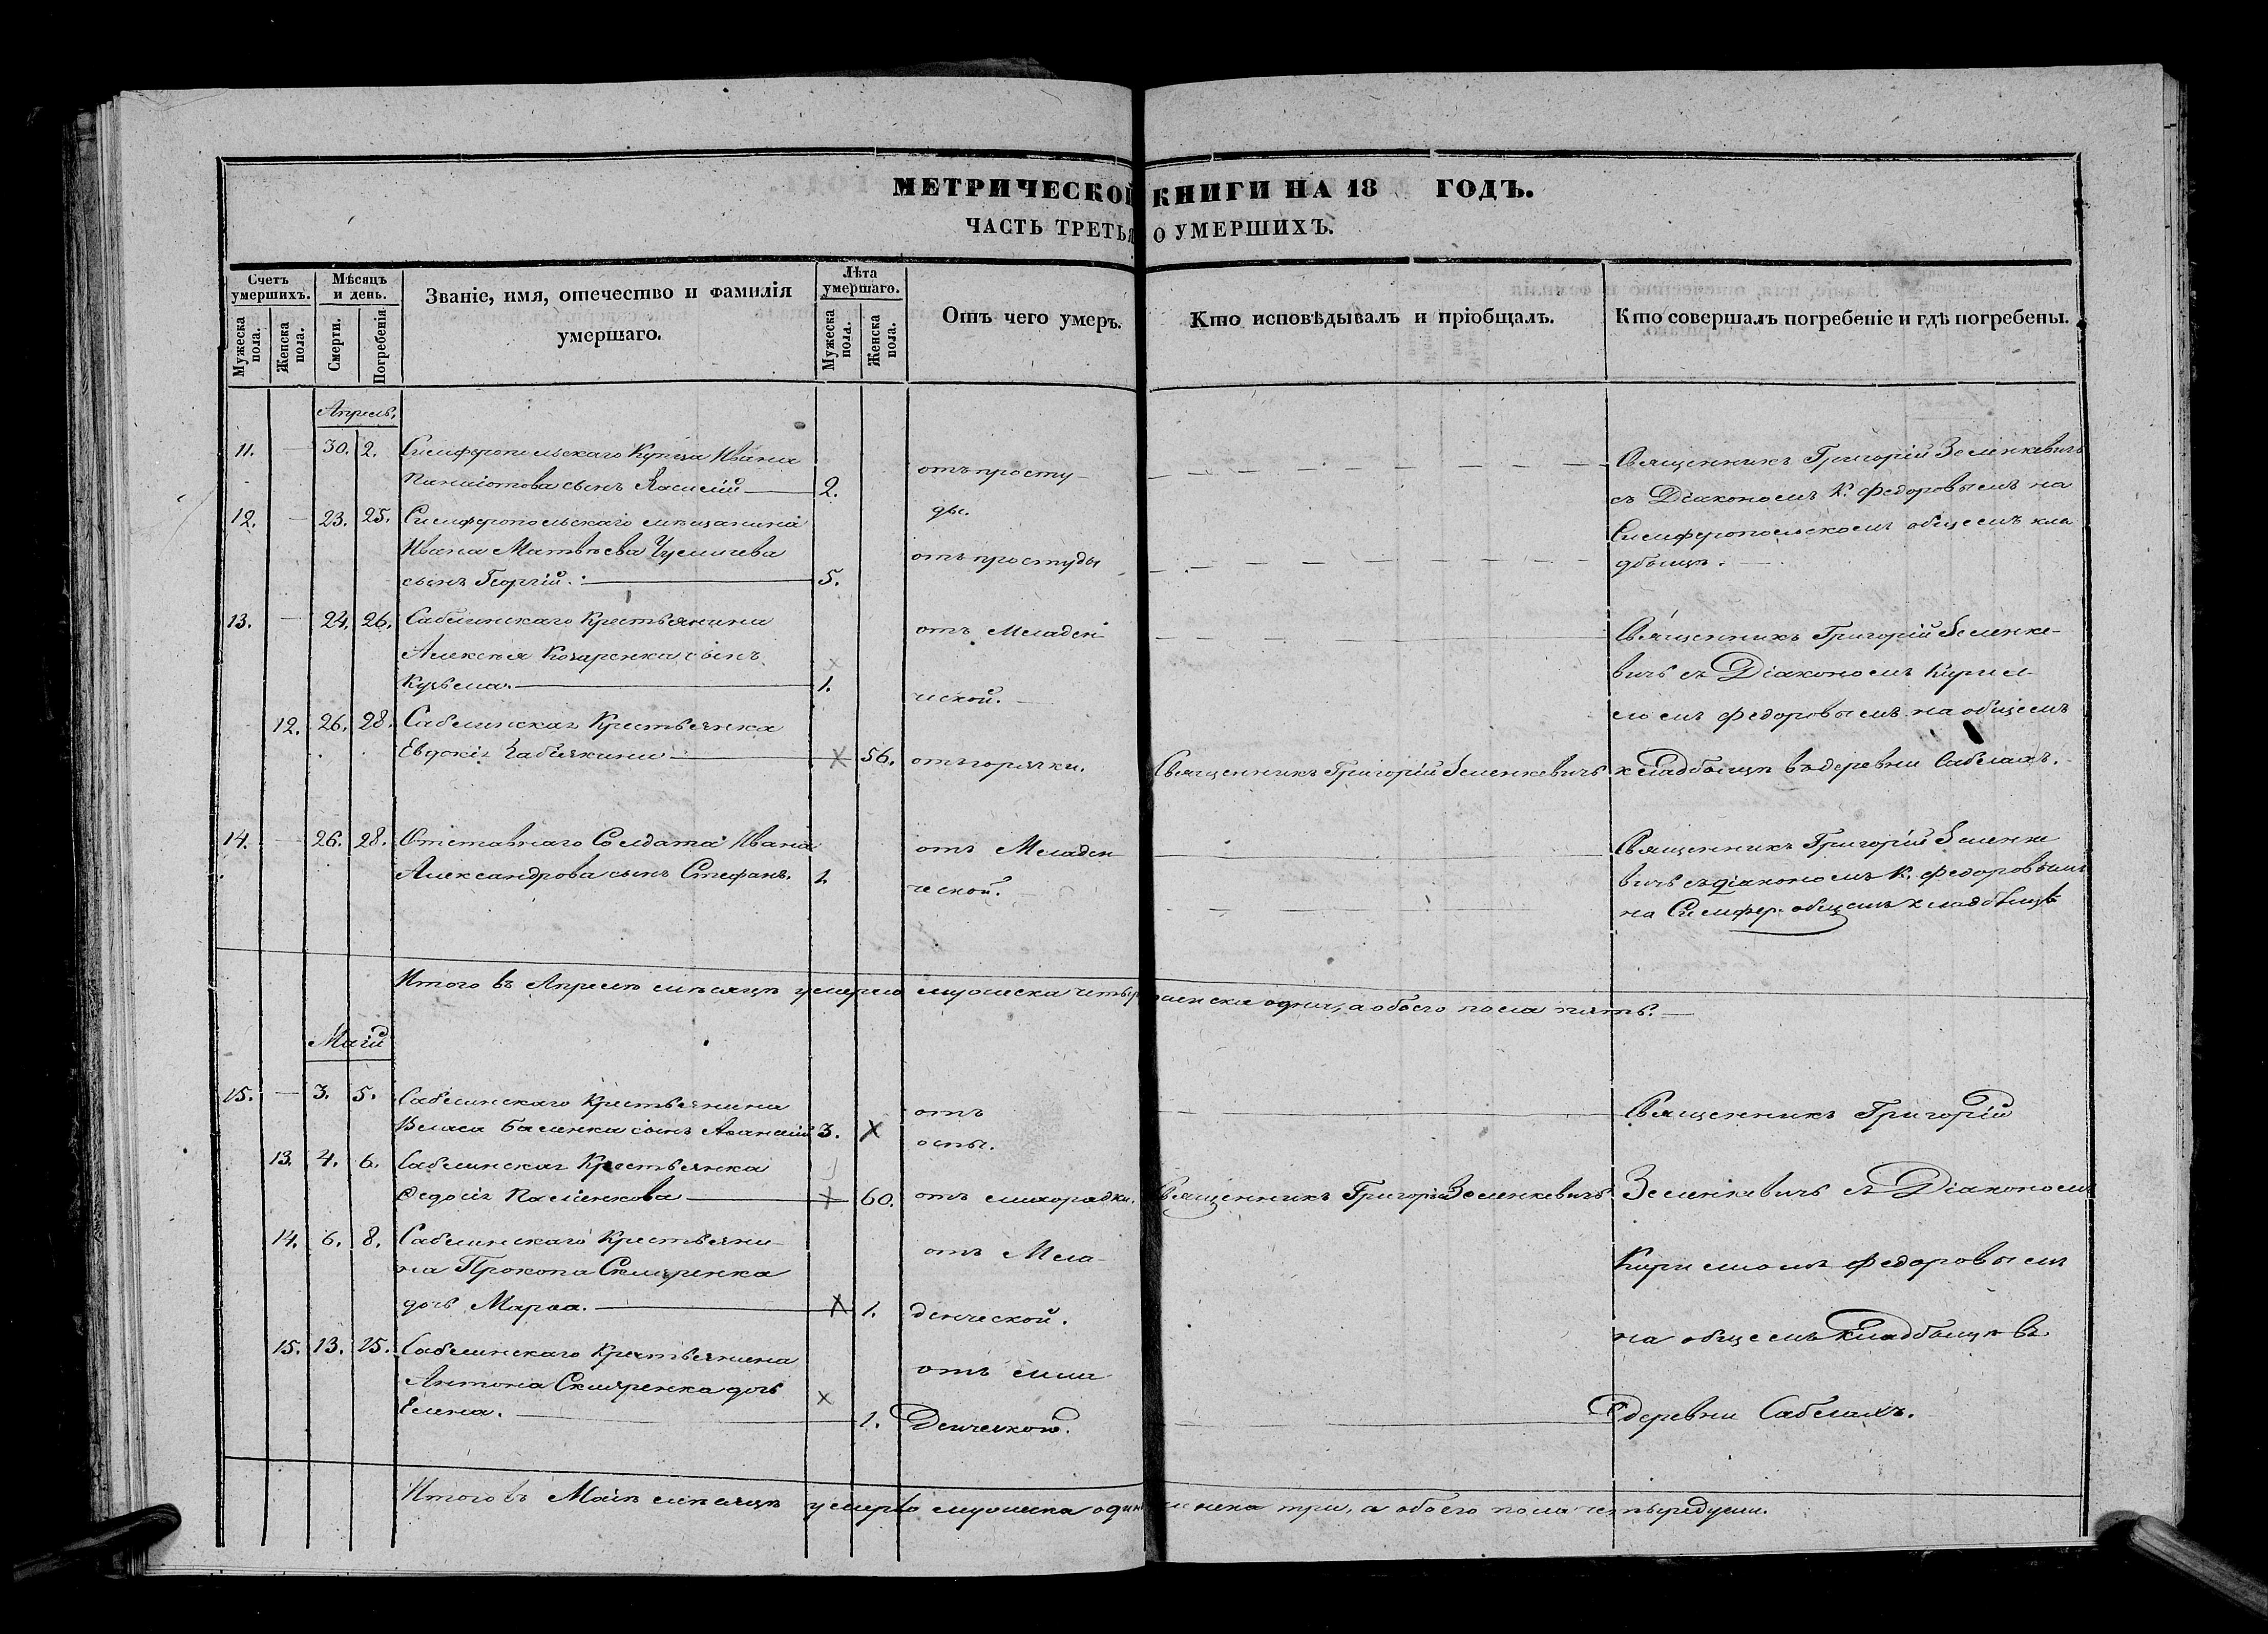 МЕТРИЧЕСКОЙ КНИГИ НА 18 ГОДЪ.
ЧАСТЬ ТРЕТЬЯ О УМЕРШИХЪ.
Счетъ умершихъ.
Мужеска пола.
Женска пола.
Мѣсяцъ и день.
Смерти.
Погребенія.
Званіе, имя, отечество и фамилія
умершаго.
Лѣта умершаго.
Мужеска пола.
Женска пола.
Отъ чего умеръ.
Кто исповѣдывалъ и пріобщалъ.
Кто совершалъ погребеніе и гдѣ погребены.
Апрель.
11. — 30. 2. Симферопольскаго Купца Ивана
сынъ Василій — 2. отъ просту
ды.
Священникъ Григорій Зеленкевичь
съ Діакономъ К. Федоровымъ на
Симферопольскомъ общемъ кла
дбищѣ.
12. — 23. 25. Симферопольскаго мѣщанина
Ивана Матвѣева
сынъ Георгій. — 5. отъ простуды
13. — 24. 26. Сабелинскаго Крестьянина
Алексѣя сынъ
Кузьма. — 1. отъ Младен
ческой.
Священникъ Григорій Зеленке-
вичь съ Діакономъ Кирил-
ломъ Федоровымъ на общемъ
кладбищѣ въ деревни Саблахъ.
12. 26. 28. Сабелинская Крестьянка
Евдокія — 56. отъ горячки. Священникъ Григорій Зеленкевичь
14. — 26. 28. Отставнаго Солдата Ивана
Александрова сынъ Стефанъ. 1. отъ Младен
ческой.
Священникъ Григорій Зеленке
вичь съ діакономъ К. Федоровымъ
на Симфер. общемъ кладбищѣ
Итого въ Апрелѣ мѣсяцѣ умерло мужеска четыре женска одна, а обоего пола пять. —
Маій
15. — 3. 5. Сабелинскаго Крестьянина
Власа сынъ Аѳанасій 3. отъ
оспы.
Священникъ Григорій
13. 4. 6. Сабелинская Крестьянка
Федосія — 60. отъ лихорадки. Священникъ Григорій Зеленкевичь
Зеленкевичь съ Діакономъ
14. 6. 8. Сабелинскаго Крестьяни-
на Прокопа Скляренка
дочь Марѳа. — 1. отъ Мла-
денческой.
Кирилломъ Федоровымъ
на общемъ кладбищѣ въ
15. 13. 15. Сабелинскаго Крестьянина
Антона Скляренка дочь
Елена. — 1. отъ мла
Денческой.
деревни Саблахъ.
Итого въ Маіѣ мѣсяцѣ умерло мужеска одинъ женска три, а обоего пола четыре души.